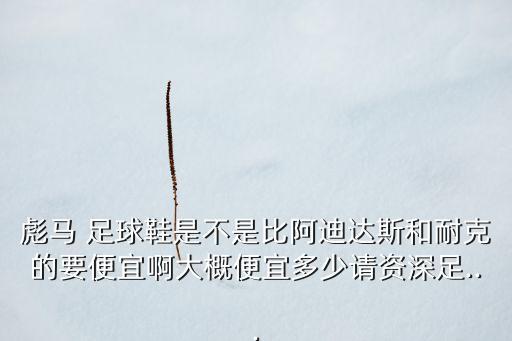 彪马 足球鞋是不是比阿迪达斯和耐克
的要便宜啊大概便宜多少请资深足..
.